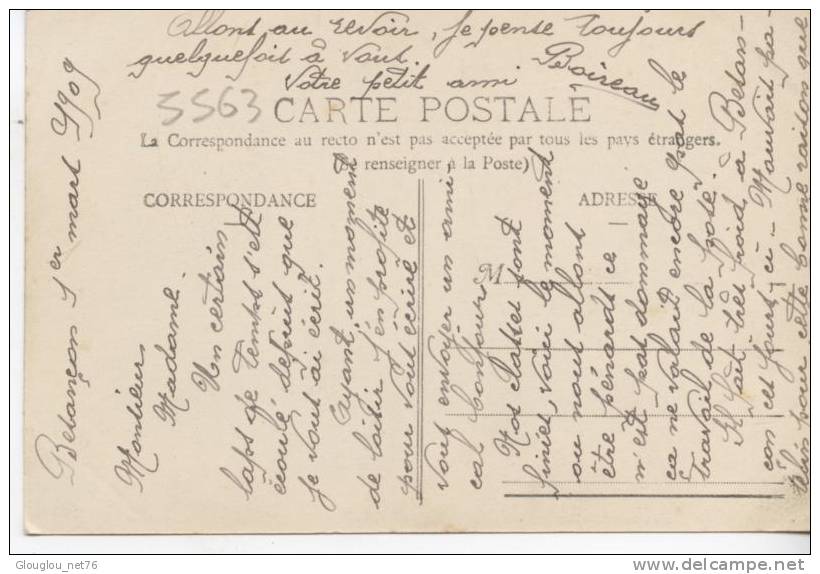 Besançon 1er mars 1909
Monsieur,
Madame.
Un certain
laps de temps s'est
écoulé depuis que
je vous ai écrit.
Ayant un moment
de loisir j'en profite
pour vous écrire et
vous envoyer un ami,
cal bonjour.
Nos classes sont
finies, voici le moment
où nous allons
être pénards ce
n'est pas dommage
ça ne valait encore pas le
travail de la Zote.
Il fait très froid à Besan-
çon ces jours-ci. Mauvais pa-
telin pour cette bonne raison que
Allons au revoir, je pense toujours
quelquefois à vous.
Votre petit ami Boireau
5563
CARTE POSTALE
La Correspondance au recto n'est pas acceptée par tous les pays étrangers.
(Se renseigner à la Poste)
CORRESPONDANCE
ADRESSE
M
Glouglou_net76
delcampe.net